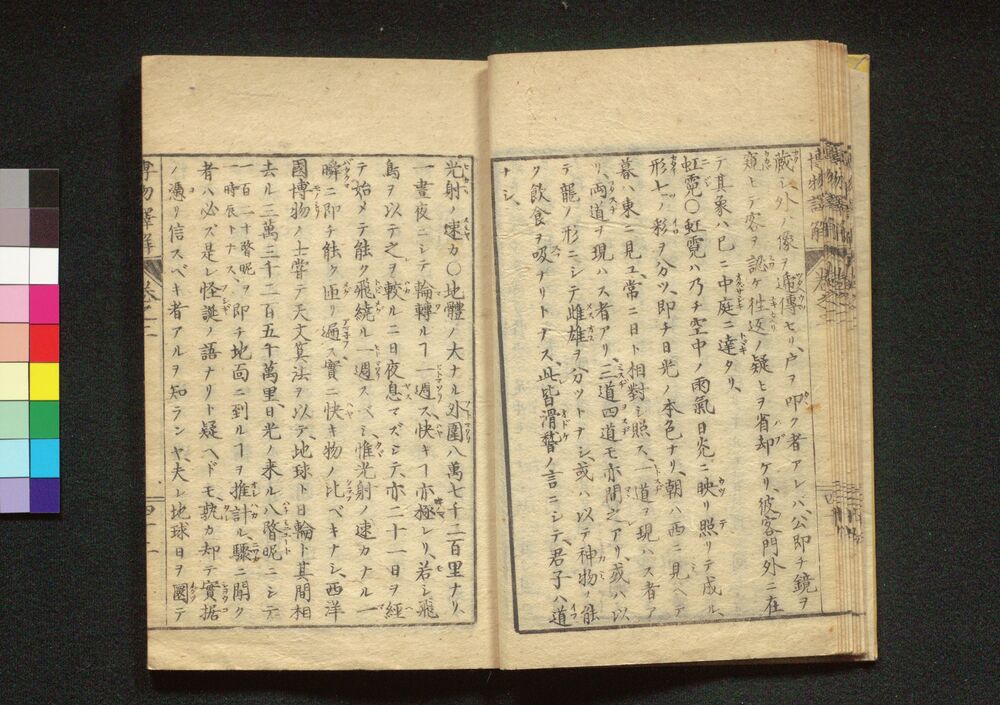 博物譯解
卷之二
藏シ外ノ像ヲ遞傳セリ、戸ヲ叩ク者アレハ、公即チ鏡ヲ
窺ヒテ客ヲ認ケ徃返ノ疑ヒヲ省却ケリ、彼客門外ニ在
テ其象ハ已ニ中庭ニ達タリ、
虹霓〇虹霓ハ乃チ空中ノ雨氣日炎ニ映リ照リテ成ル、
形七ツノ彩ヲ分ツ、即チ日光ノ本色ナリ、朝ハ西ニ見ヘテ
暮ハ東ニ見ユ、常ニ日ト相對シ照ス、一道ヲ現ハス者ア
リ、両道ヲ現ハス者アリ、三道四道モ亦間之アリ、或ハ以
テ龍ノ形ニシテ雌雄ヲ分ツトナシ、或ハ以テ神物ノ能
ク飲食ヲ吸ナリトナス、此皆滑稽ノ言ニシテ、君子ハ道
ナシ、
光射ノ速カ〇地體ノ大ナル外圍八萬七千二百里ナリ、
一晝夜ニシテ輪轉ルヿ一週ス、快キヿ亦極レリ、若シ飛
鳥ヲ以テ之ヲ較ルニ日夜息マズシテ、亦二十一日ヲ經
テ始メテ能ク飛繞ル一週スベシ、惟光射ノ速カナル一
瞬ニ即チ能ク匝リ過ス實ニ快キ物ノ比ベキナシ、西洋
國博物ノ士嘗テ天文算法ヲ以テ、地球ト日輪ト其間相
去ル三萬三千二百五十萬里、日光ノ来ル八瞀昵ニシテ
一百二十瞀昵ヲ一時辰トナス、即チ地面ニ到ルヿヲ推計ル、驟ニ聞ク
者ハ必ズ是レ怪誕ノ語ナリト疑ヘドモ、孰カ却テ實据
ノ憑リ信スベキ者アルヲ知ランヤ、夫レ地球日ヲ圜テ
博物譯解
卷之二
四十二